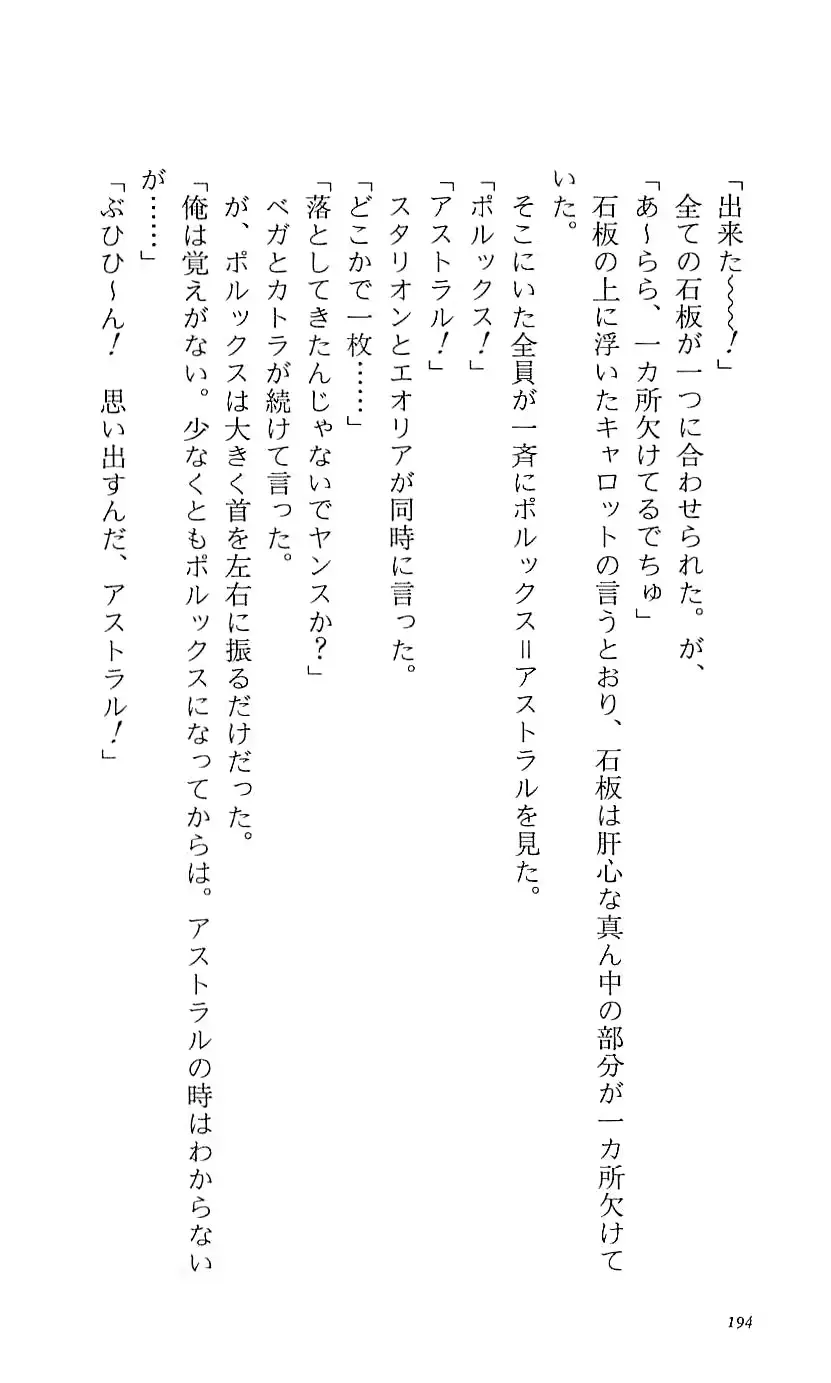 「出来た〜〜〜！」
全ての石板が一つに合わせられた。が、
「あ〜らら、一カ所欠けてるでちゅ」
石板の上に浮いたキャロットの言うとおり、石板は肝心な真ん中の部分が一カ所欠けて
いた。
そこにいた全員が一斉にポルックス＝アストラルを見た。
「ポルックス！」
「アストラル！」
スタリオンとエオリアが同時に言った。
「どこかで一枚……」
「落としてきたんじゃないでヤンスか？」
ベガとカトラが続けて言った。
が、ポルックスは大きく首を左右に振るだけだった。
「俺は覚えがない。少なくともポルックスになってからは。アストラルの時はわからない
が……」
「ぶひひ〜ん！　思い出すんだ、アストラル！」
194